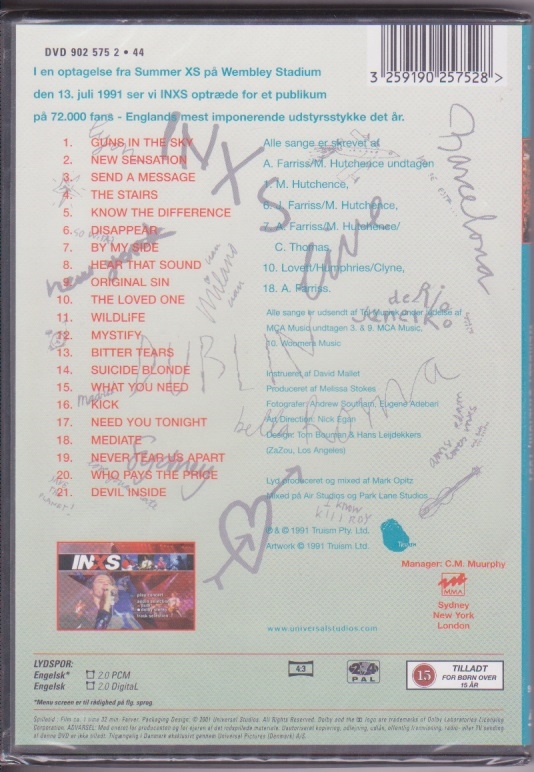 DVD 902 575 2 • 44
3 259190 257528 >
I en optagelse fra Summer XS på Wembley Stadium
den 13. juli 1991 ser vi INXS optræde for et publikum
på 72.000 fans - Englands mest imponerende udstyrsstykke det år.
1. GUNS IN THE SKY
2. NEW SENSATION
3. SEND A MESSAGE
4. THE STAIRS
5. KNOW THE DIFFERENCE
6. DISAPPEAR
7. BY MY SIDE
8. HEAR THAT SOUND
9. ORIGINAL SIN
10. THE LOVED ONE
11. WILDLIFE
12. MYSTIFY
13. BITTER TEARS
14. SUICIDE BLONDE
15. WHAT YOU NEED
16. KICK
17. NEED YOU TONIGHT
18. MEDIATE
19. NEVER TEAR US APART
20. WHO PAYS THE PRICE
21. DEVIL INSIDE
Alle sange er skrevet af
A. Farriss/M. Hutchence undtagen
1. M. Hutchence,
6. J. Farriss/M. Hutchence,
7. A. Farriss/M. Hutchence/
C. Thomas,
10. Lovett/Humphries/Clyne,
18. A. Farriss.
Alle sange er udsendt af Tol Muziek under ledelse af
MCA Music undtagen 3. & 9. MCA Music,
10. Woomera Music
Instrueret af David Mallet
Produceret af Melissa Stokes
Fotografer: Andrew Southam, Eugene Adebari
Art Direction: Nick Egan
Design: Tom Bouman & Hans Leijdekkers
(ZaZou, Los Angeles)
Lyd produceret og mixed af Mark Opitz
Mixed på Air Studios og Park Lane Studios,
℗ & © 1991 Truism Pty. Ltd.
Artwork © 1991 Truism Ltd.
Truism
INXS
live
Barcelona
new york
Milano
de RIO
JaNeiRo
DUBLIN
bella ROMA
Sydney
I KNOW
KILLROY
INXS
Manager: C.M. Muurphy
MMA
Sydney
New York
London
www.universalstudios.com
LYDSPOR:
Engelsk* 2.0 PCM
Engelsk 2.0 DigitaL
*Menu screen er til rådighed på flg. sprog.
4:3
2 4
PAL
15
TILLADT
FOR BØRN OVER
15 ÅR